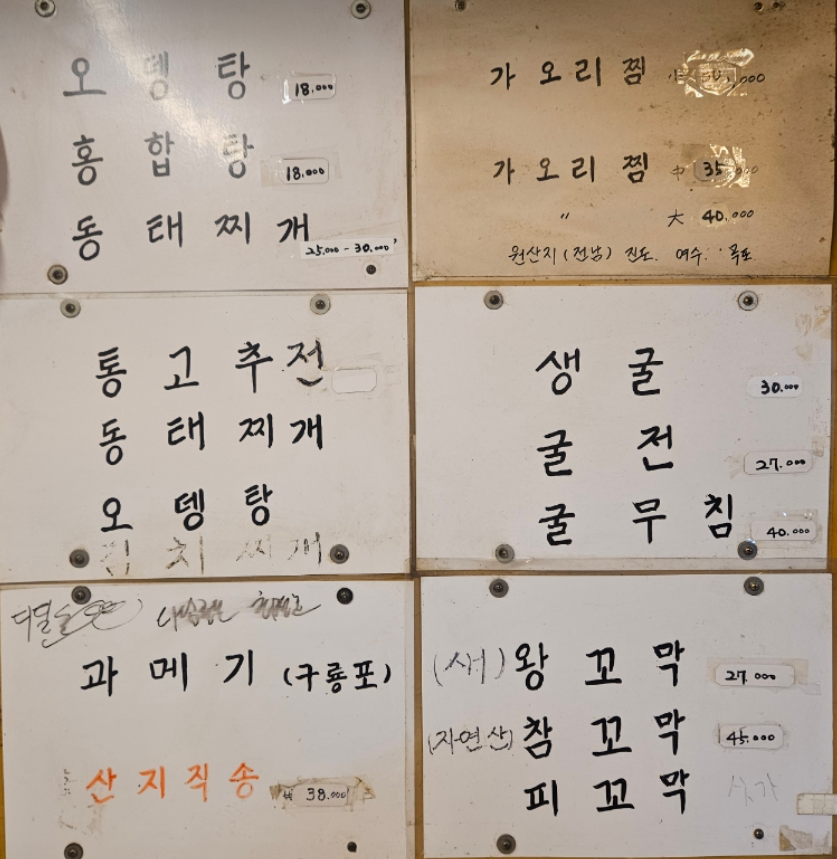 오뎅탕 18.000
홍합탕 18.000
동태찌개 25,000 - 30.000
가오리찜 小
가오리찜 中 35
〃 大 40.000
원산지(전남) 진도. 여수. 목포
통고추전
동태찌개
오뎅탕
김치찌개
생굴 30.000
굴전 27.000
굴무침 40.000
과메기 (구룡포)
산지직송 38.000
(새) 왕꼬막 27.000
(자연산) 참꼬막 45.000
피꼬막 싯가